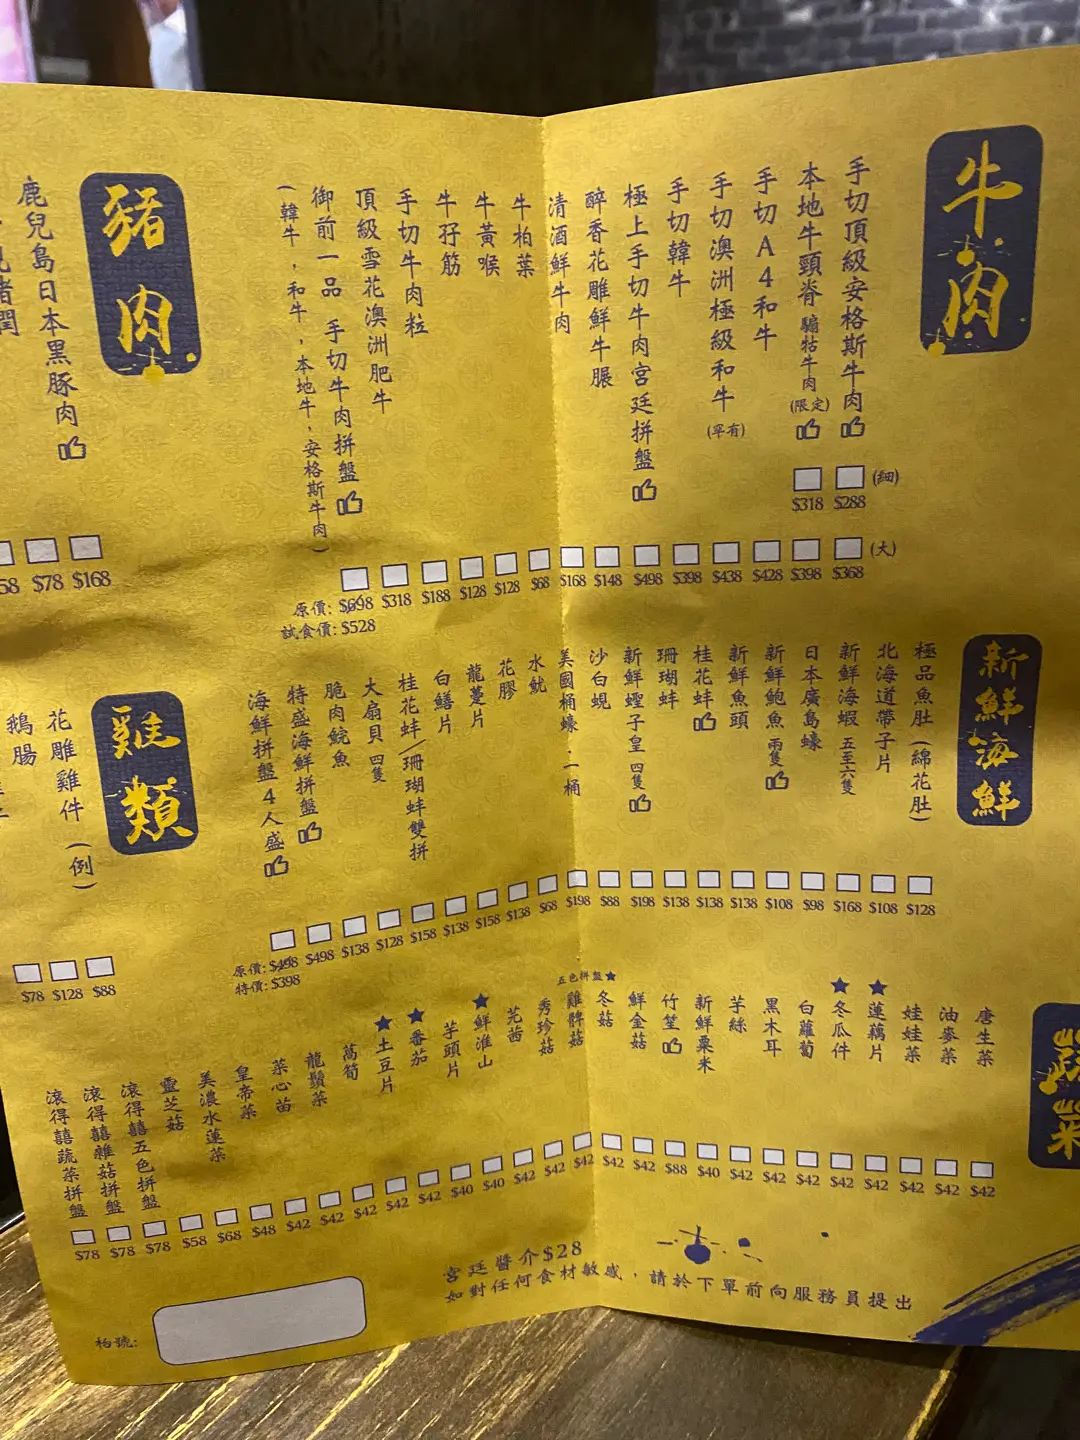 牛肉
手切頂級安格斯牛肉 (細) $288 (大) $368
本地牛頸脊 騸牯牛肉 (限定) $318 $398
手切A4和牛 $428
手切澳洲極級和牛 (罕有) $438
手切韓牛 $398
極上手切牛肉宮廷拼盤 $498
醉香花雕鮮牛𦟌 $148
清酒鮮牛肉 $168
牛柏葉 $68
牛黃喉 $128
牛孖筋 $128
手切牛肉粒 $188
頂級雪花澳洲肥牛 $318
御前一品 手切牛肉拼盤
(韓牛，和牛，本地牛，安格斯牛肉)
原價: $698
試食價: $528
豬肉
鹿兒島日本黑豚肉 $168
$78
新鮮海鮮
極品魚肚 (綿花肚) $128
北海道帶子片 $108
新鮮海蝦 五至六隻 $168
日本廣島蠔 $98
新鮮鮑魚 兩隻 $108
新鮮魚頭 $138
桂花蚌 $138
珊瑚蚌 $138
新鮮蟶子皇 四隻 $198
沙白蜆 $88
美國桶蠔 一桶 $198
水魷 $68
花膠 $138
龍躉片 $158
白鱔片 $138
桂花蚌/珊瑚蚌雙拼 $158
大扇貝 四隻 $128
脆肉鯇魚 $138
特盛海鮮拼盤 $498
海鮮拼盤4人盛
原價: $498
特價: $398
雞類
花雕雞件 (例) $88
鵝腸 $128
$78
蔬菜
唐生菜 $42
油麥菜 $42
娃娃菜 $42
★蓮藕片 $42
★冬瓜件 $42
白蘿蔔 $42
黑木耳 $42
芋絲 $42
新鮮粟米 $40
竹笙 $88
鮮金菇 $42
五色拼盤★
冬菇 $42
雞髀菇 $42
秀珍菇 $42
芫茜 $42
★鮮淮山 $40
芋頭片 $40
★番茄 $42
★土豆片 $42
萵筍 $42
龍鬚菜 $42
菜心苗 $42
皇帝菜 $48
美濃水蓮菜 $68
靈芝菇 $58
滾得囍五色拼盤 $78
滾得囍雜菇拼盤 $78
滾得囍蔬菜拼盤 $78
宮廷醬介$28
如對任何食材敏感，請於下單前向服務員提出
枱號: